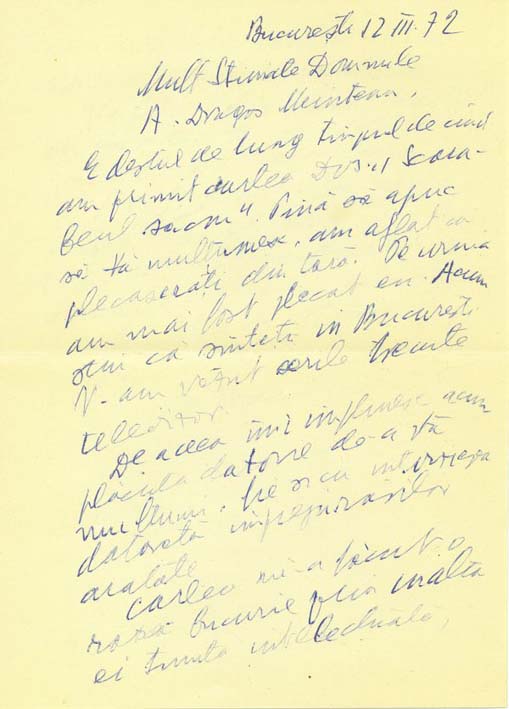 București 12 III. 72
Mult Stimate Domnule
A. Dragoș Munteanu,
E destul de lung timpul de cînd
am primit cartea Dvs. „Scara-
beul sacru". Pînă să apuc
să vă mulțumesc, am aflat că
plecaserăți din țară. Pe urmă
am mai fost plecat eu. Acum
știu că sînteți în București
V-am văzut serile trecute
televizor.
De aceea îmi împlinesc acum
plăcuta datorie de-a vă
mulțumi, fie și cu întîrzierea
datorată împrejurărilor
arătate.
Cartea mi-a făcut o
rară bucurie prin înalta
ei ținută intelectuală,